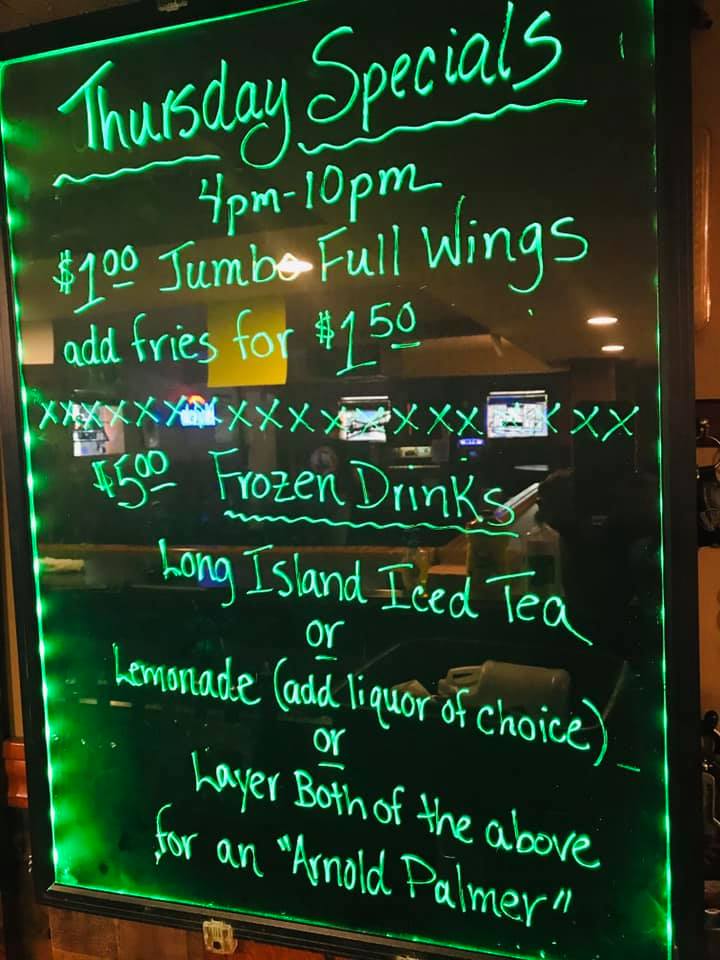 Thursday Specials
4pm-10pm
$1.00 Jumbo Full Wings
add fries for $1.50
XXXXXXXXXXXXXXXXXXX
$5.00 Frozen Drinks
Long Island Iced Tea
or
Lemonade (add liquor of choice)
or
Layer Both of the above
for an "Arnold Palmer"